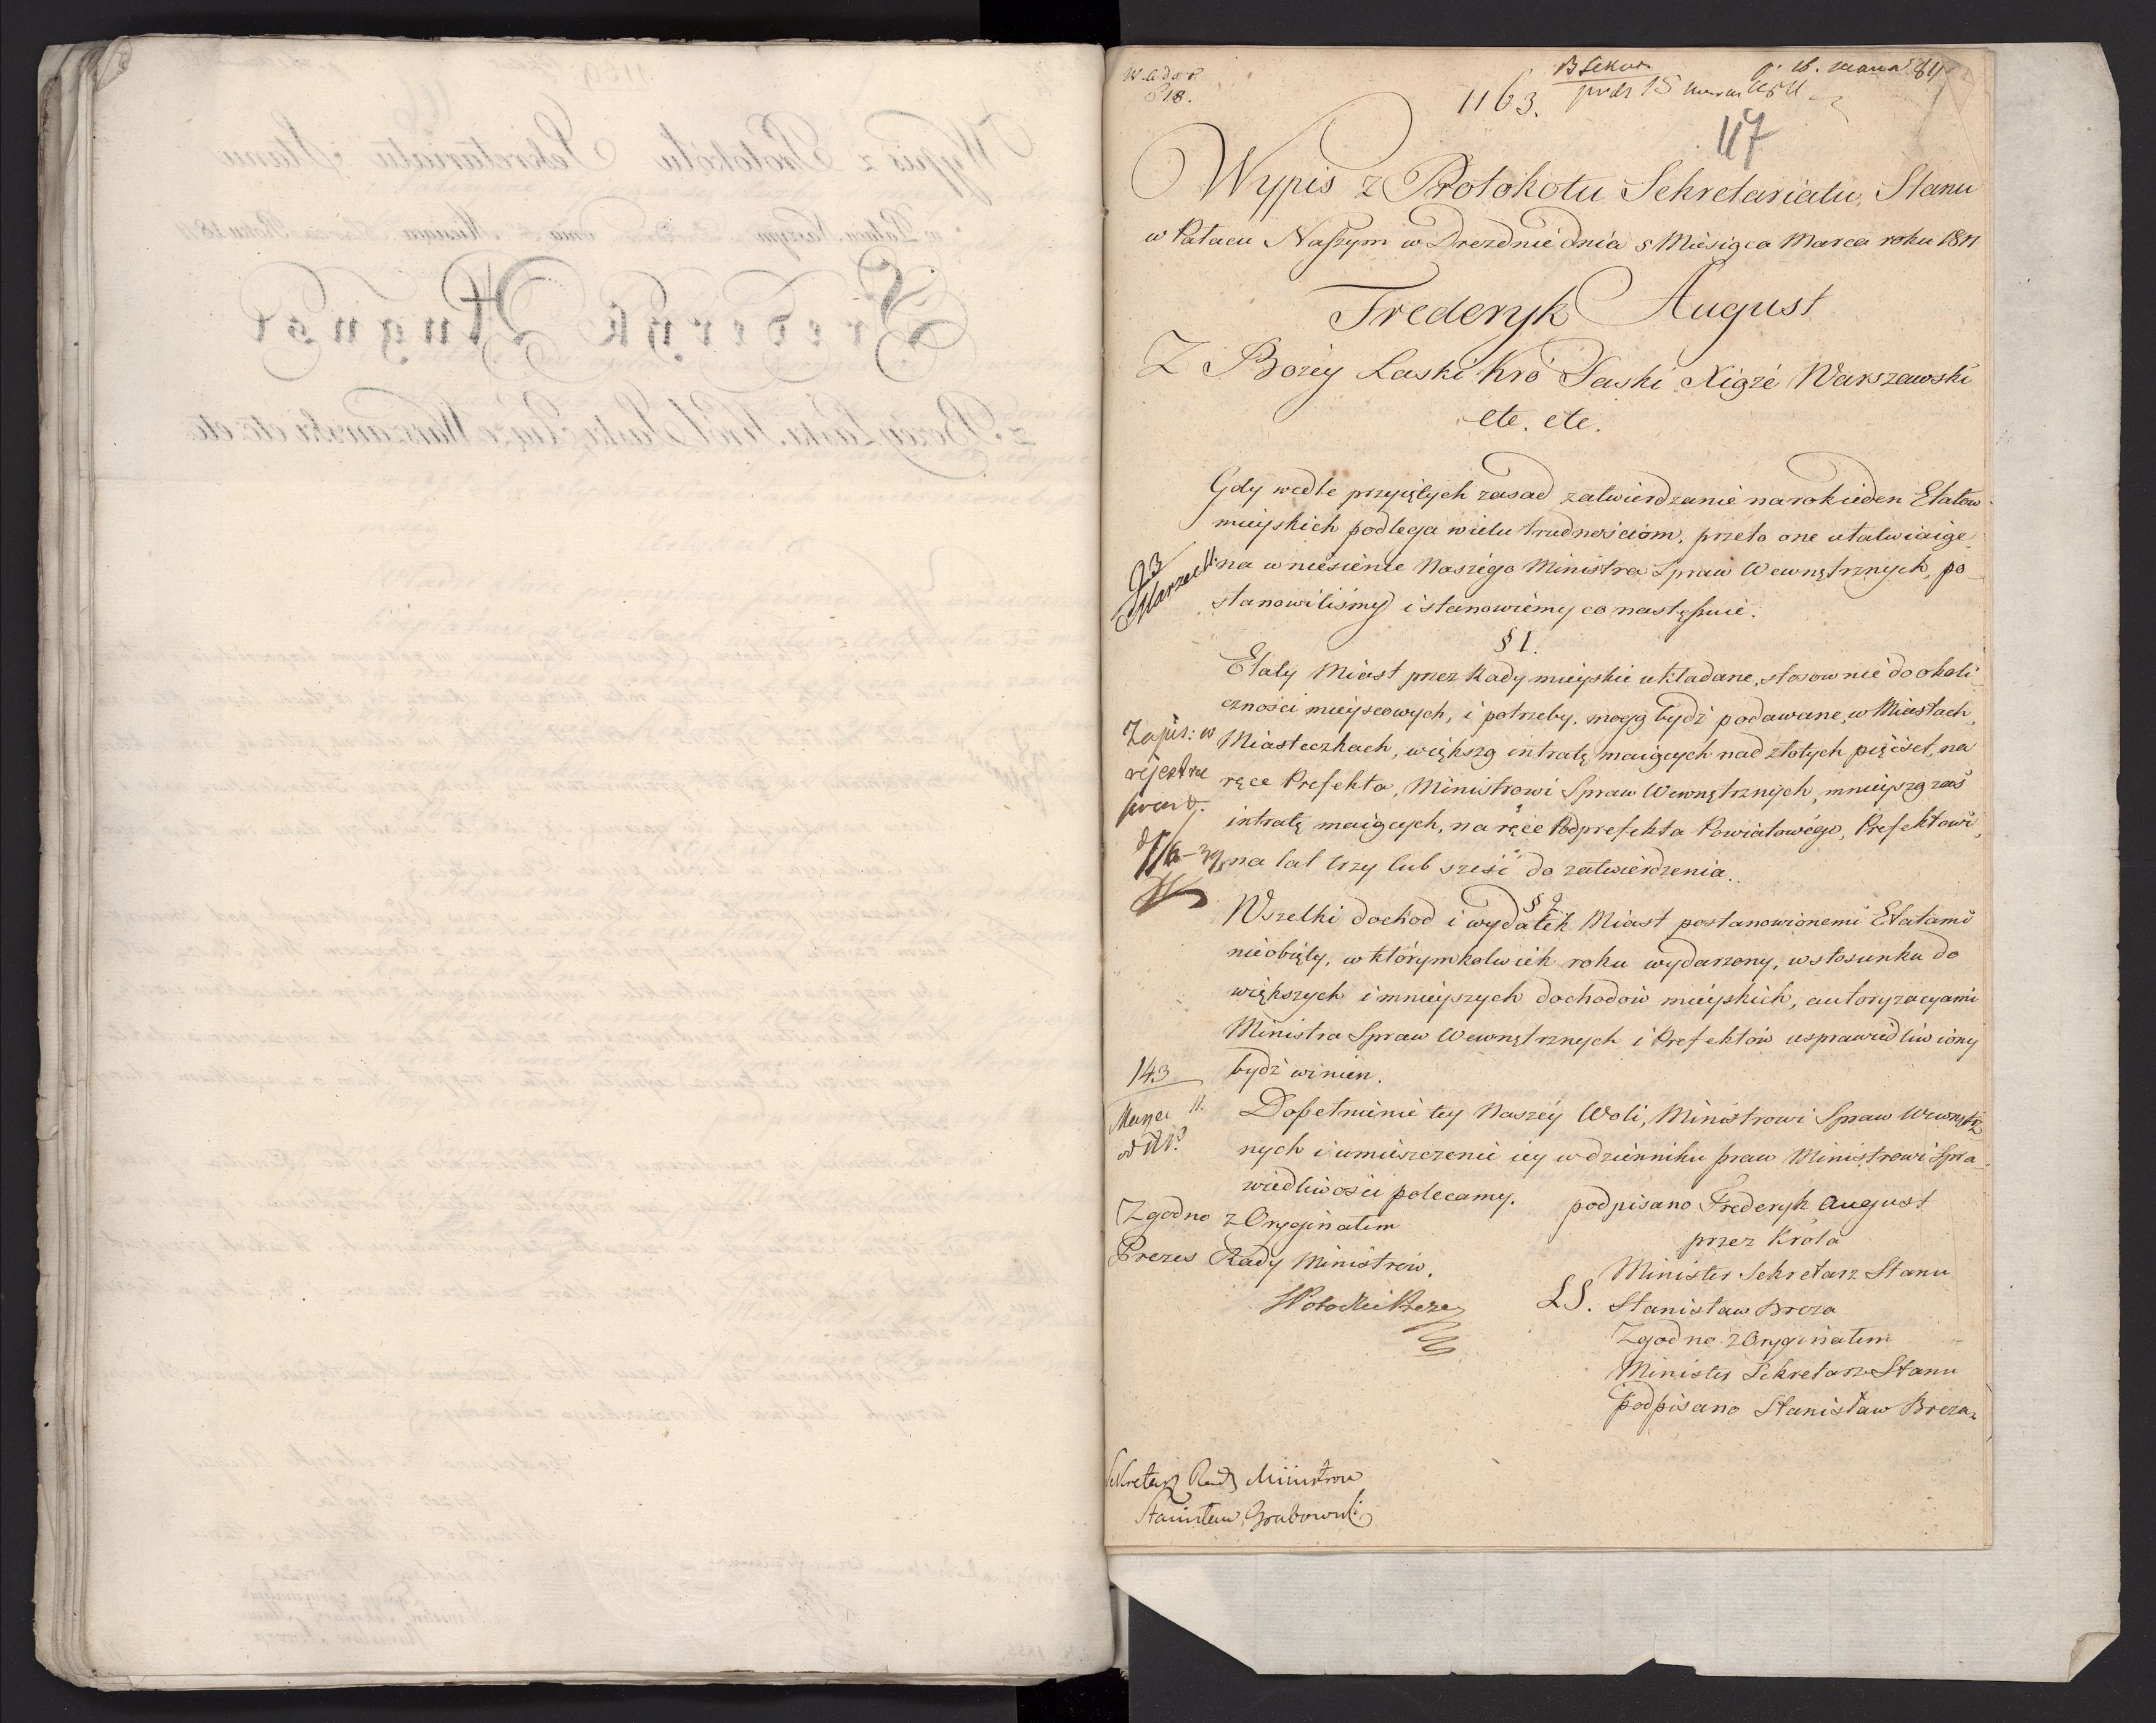 818.
1163.
117
Wypis z Protokołu Sekretariatu Stanu
w Pałacu Naszym w Dreznie dnia 5 Miesiąca Marca roku 1811
Frederyk August
Z Bożey Łaski Kró Saski Xiąże Warszawski
etc. etc.
Gdy wedle przyiętych zasad zatwierdzanie na rok ieden Etatow
mieyskich podlega wielu trudnościom, przeto one ułatwiaiąc,
na wniesienie Naszego Ministra Spraw Wewnętrznych, po-
stanowiliśmy i stanowiemy co następuie.
§ 1.
Etaty Miast przez Rady mieyskie układane, stosownie do okoli-
czności mieyscowych, i potrzeby, mogą bydź podawane, w Miastach,
Miasteczkach, większą intratę maiących nad złotych pięćset, na
ręce Prefekta, Ministrowi Spraw Wewnętrznych, mnieyszą zaś
intratę maiących, na ręce Podprefekta Powiatowego, Prefektowi,
na lat trzy lub sześć do zatwierdzenia.
§ 2
Wszelki dochod i wydatek Miast postanowionemi Etatami
nieobięty, w którymkolwiek roku wydarzony, w stosunku do
większych i mnieyszych dochodów mieyskich, autoryzacyami
Ministra Spraw Wewnętrznych i Prefektów usprawiedliwiony
bydź winien.
Dopełnienie tey Naszéy Woli, Ministrowi Spraw Wewnętrz
nych i umieszczenie iey w dzienniku praw Ministrowi Spra-
wiedliwości polecamy.
podpisano Frederyk August
przez Króla
Minister Sekretarz Stanu
LS. Stanisław Breza
Zgodno z Oryginałem
Minister Sekretarz Stanu
podpisano Stanisław Breza
Zgodno z Oryginałem
Prezes Rady Ministrów.
23
Zapis: w
rejestru
143
Marca 11.
Sekretarz Rady Ministrow
Stanisław Grabowski